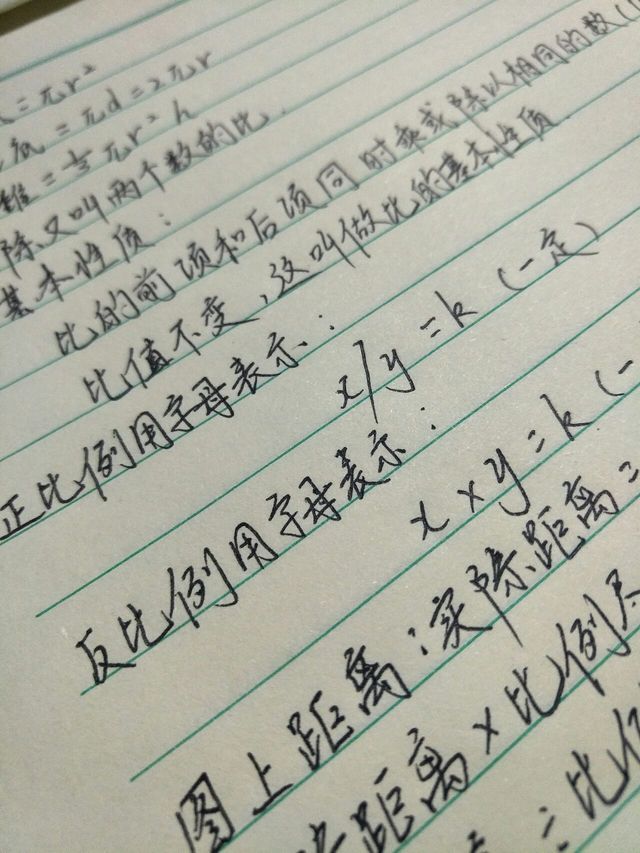 =πr²
底=πd=2πr
锥=⅓πr²h
除又叫两个数的比.
基本性质:
比的前项和后项同时乘或除以相同的数(
比值不变,这叫做比的基本性质.
正比例用字母表示:
x/y=k(一定)
反比例用字母表示:
x×y=k(一
图上距离:实际距离=
距离×比例尺